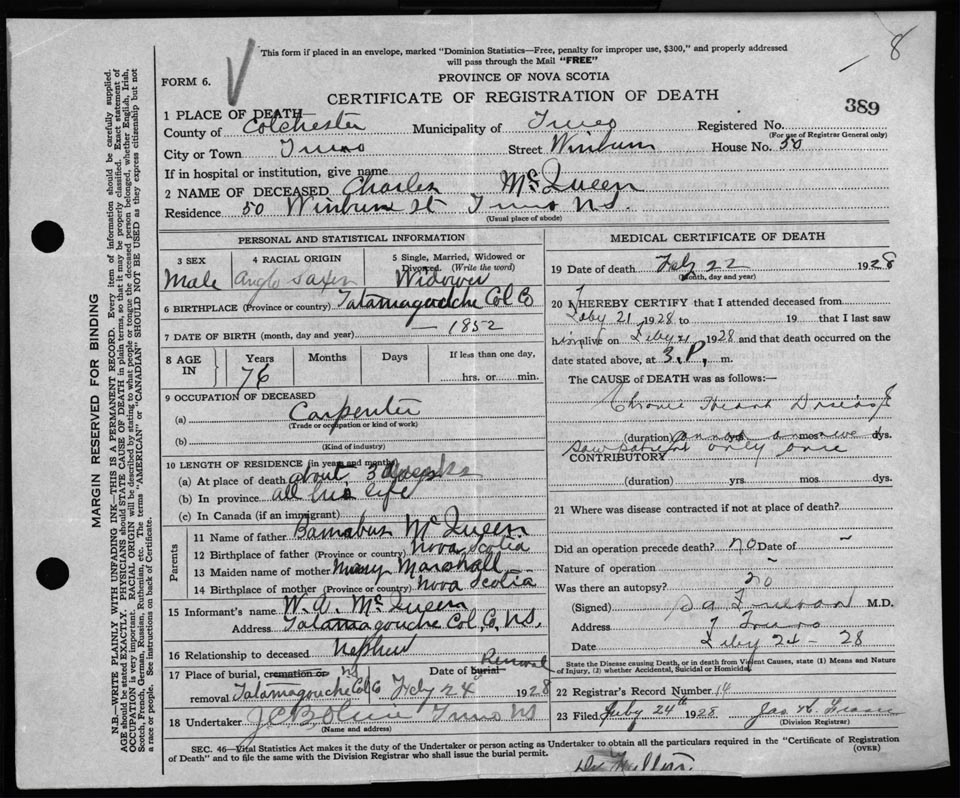 8
This form if placed in an envelope, marked "Dominion Statistics—Free, penalty for improper use, $300," and properly addressed
will pass through the Mail "FREE"
FORM 6.
PROVINCE OF NOVA SCOTIA
CERTIFICATE OF REGISTRATION OF DEATH
389
1 PLACE OF DEATH
County of Colchester Municipality of Truro Registered No.
(For use of Registrar General only)
City or Town Truro Street Winburn House No. 50
If in hospital or institution, give name
2 NAME OF DECEASED Charles McQueen
Residence 50 Winburn St Truro N.S.
(Usual place of abode)
PERSONAL AND STATISTICAL INFORMATION
3 SEX
Male
4 RACIAL ORIGIN
Anglo Saxon
5 Single, Married, Widowed or
Divorced. (Write the word)
Widower
6 BIRTHPLACE (Province or country) Tatamagouche Col Co
7 DATE OF BIRTH (month, day and year) — 1852
8 AGE IN
Years Months Days If less than one day,
76 hrs. or min.
9 OCCUPATION OF DECEASED
(a) Carpenter
(Trade or occupation or kind of work)
(b)
(Kind of industry)
10 LENGTH OF RESIDENCE (in years and months)
(a) At place of death about 3 weeks
(b) In province all his life
(c) In Canada (if an immigrant)
Parents
11 Name of father Barnabus McQueen
12 Birthplace of father (Province or country) Nova Scotia
13 Maiden name of mother Mary Marshall
14 Birthplace of mother (Province or country) Nova Scotia
15 Informant's name W. A. McQueen
Address Tatamagouche Col, Co, N.S.
16 Relationship to deceased Nephew
17 Place of burial, cremation or Date of burial Removal
removal Tatamagouche Col Co Feby 24 1928
18 Undertaker Truro NS
(Name and address)
MEDICAL CERTIFICATE OF DEATH
19 Date of death Feby 22 1928
(Month, day and year)
20 I HEREBY CERTIFY that I attended deceased from
Feby 21 1928 to 19 that I last saw
him alive on Feby 21 1928 and that death occurred on the
date stated above, at 3.P. m.
The CAUSE of DEATH was as follows:—
Chronic Heart Disease
(duration) yrs. mos. dys.
saw patient only once
CONTRIBUTORY
(duration) yrs. mos. dys.
21 Where was disease contracted if not at place of death?
Did an operation precede death? no Date of —
Nature of operation —
Was there an autopsy? no
(Signed) M.D.
Address Truro
Date Feby 24 - 28
State the Disease causing Death, or in death from Violent Causes, state (1) Means and Nature
of Injury, (2) whether Accidental, Suicidal or Homicidal.
22 Registrar's Record Number 14
23 Filed Feby 24th 1928 Jas. H.
(Division Registrar)
SEC. 46—Vital Statistics Act makes it the duty of the Undertaker or person acting as Undertaker to obtain all the particulars required in the "Certificate of Registration
of Death" and to file the same with the Division Registrar who shall issue the burial permit.
(OVER)
MARGIN RESERVED FOR BINDING
N.B.—WRITE PLAINLY WITH UNFADING INK—THIS IS A PERMANENT RECORD. Every item of information should be carefully supplied.
AGE should be stated EXACTLY. PHYSICIANS should STATE CAUSE OF DEATH in plain terms, so that it may be properly classified. Exact statement of
OCCUPATION is very important. RACIAL ORIGIN will be described by stating to what people or tongue the deceased person belonged, whether English, Irish,
Scotch, French, German, Russian, Ruthenian, etc. The terms "AMERICAN" or "CANADIAN" SHOULD NOT BE USED as they express citizenship but not
a race or people. See instructions on back of Certificate.